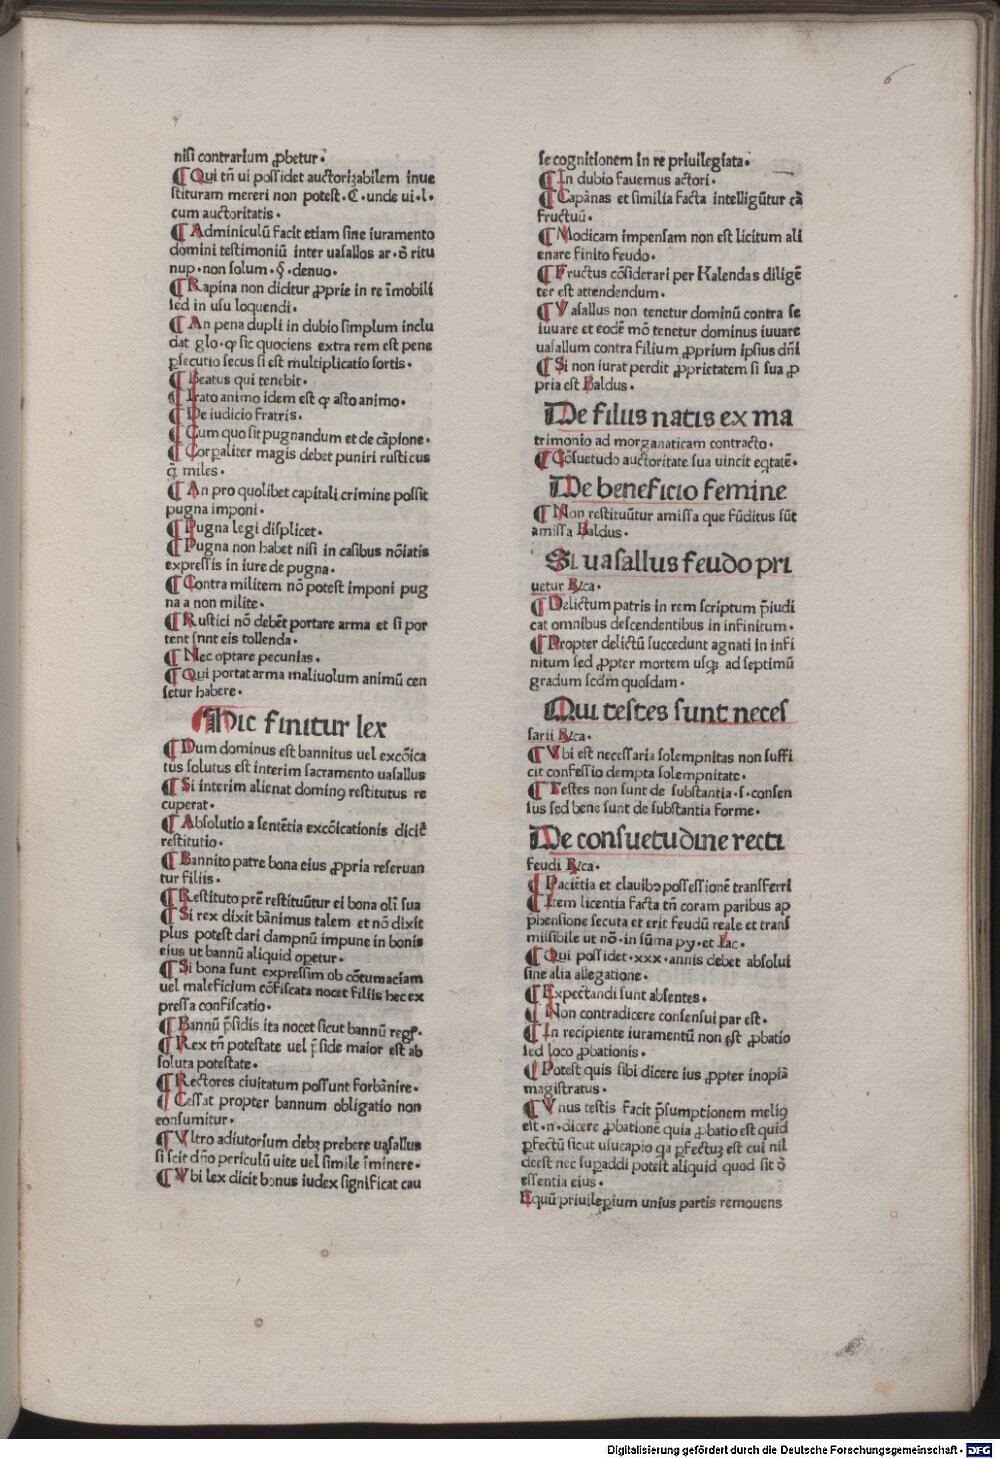 6
nisi contrarium ꝓbetur·
¶ Qui tñ ui possidet auctorizabilem inue
stituram mereri non potest·C̄·unde ui·l·
cum auctoritatis·
¶ Adminiculū facit etiam sine iuramento
domini testimoniū inter uasallos ar·ð ritu
nup·non solum·§·denuo·
¶ Rapina non dicitur ꝓprie in re īmobili
sed in usu loquendi·
¶ An pena dupli in dubio simplum inclu
dat glo·ꝙ sic quociens extra rem est pene
ꝑsecutio secus si est multiplicatio sortis·
¶ Beatus qui tenebit·
¶ Irato animo idem est ꝙ asto animo·
¶ De iudicio fratris·
¶ Cum quo sit pugnandum et de cāpione·
¶ Corꝑaliter magis debet puniri rusticus
q̄ miles·
¶ An pro quolibet capitali crimine possit
pugna imponi·
¶ Pugna legi displicet·
¶ Pugna non habet nisi in casibus nōiatis
expressis in iure de pugna·
¶ Contra militem nō potest imponi pug
na a non milite·
¶ Rustici nō debēt portare arma et si por
tent snnt eis tollenda·
¶ Nec optare pecunias·
¶ Qui portat arma maliuolum animū cen
setur habere·
¶ Hic finitur lex
¶ Dum dominus est bannitus uel excōica
tus solutus est interim sacramento uasallus
¶ Si interim alienat dominꝯ restitutus re
cuperat·
¶ Absolutio a sentētia excōicationis dicit̄
restitutio·
¶ Bannito patre bona eius ꝓpria reseruan
tur filiis·
¶ Restituto prē restituūtur ei bona oli sua
¶ Si rex dixit bānimus talem et nō dixit
plus potest dari dampnū impune in bonis
eius ut bannū aliquid oꝑetur·
¶ Si bona sunt expressim ob cōtumaciam
uel maleficium cōfiscata nocet filiis hec ex
pressa confiscatio·
¶ Bannū p̄sidis ita nocet sicut bannū regꝭ·
¶ Rex tñ potestate uel p̄side maior est ab
soluta potestate·
¶ Rectores ciuitatum possunt forbānire·
¶ Cessat propter bannum obligatio non
consumitur·
¶ Vltro adiutorium debꝫ prebere uasallus
si scit dño periculū uite uel simile īminere·
¶ Vbi lex dicit bonus iudex significat cau
se cognitionem in re priuilegiata·
¶ In dubio fauemus actori·
¶ Capanas et similia facta intelligūtur cā
fructuū·
¶ Modicam impensam non est licitum ali
enare finito feudo·
¶ Fructus cōsiderari per Kalendas diligē
ter est attendendum·
¶ Vasallus non tenetur dominū contra se
iuuare et eodē mō tenetur dominus iuuare
uasallum contra filium ꝓprium ipsius dñi
¶ Si non iurat perdit ꝓprietatem si sua ꝓ
pria est Baldus·
De filiis natis ex ma
trimonio ad morganaticam contracto·
¶ Cōsuetudo auctoritate sua uincit eqtatē·
De beneficio femine
¶ Non restituūtur amissa que fūditus sūt
amissa Baldus·
Si uasallus feudo pri
uetur Rica·
¶ Delictum patris in rem scriptum p̄iudi
cat omnibus descendentibus in infinitum·
¶ Propter delictū succedunt agnati in infi
nitum sed ꝓpter mortem usqꝫ ad septimū
gradum scdm quosdam·
Qui testes sunt neces
sarii Rica·
¶ Vbi est necessaria solempnitas non suffi
cit confessio dempta solempnitate·
¶ Testes non sunt de substantia·s·consen
sus sed bene sunt de substantia forme·
De consuetudine recti
feudi Rica·
¶ Paciētia et clauibꝫ possessionē transferri
¶ Item licentia facta tñ coram paribus ap
phensione secuta et erit feudū reale et trans
missibile ut nō·in sūma py·et Iac·
¶ Qui possidet·xxx·annis debet absolui
sine alia allegatione·
¶ Expectandi sunt absentes·
¶ Non contradicere consensui par est·
¶ In recipiente iuramentū non est ꝓbatio
sed loco ꝓbationis·
¶ Potest quis sibi dicere ius ꝓpter inopiā
magistratus·
¶ Vnus testis facit p̄sumptionem meliꝯ
est·n·dicere ꝓbatione quia ꝓbatio est quid
ꝑfectū sicut usucapio qa ꝑfectuꝫ est cui nil
deest nec suꝑaddi potest aliquid quod sit ð
essentia eius·
Equū priuilegium unius partis remouens
Digitalisierung gefördert durch die Deutsche Forschungsgemeinschaft · DFG